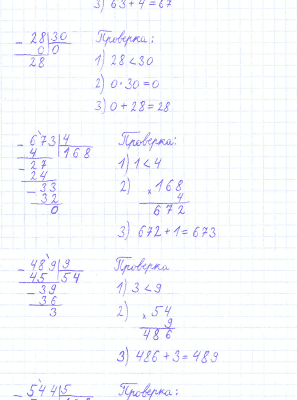 3) 63+4=67
28|30 Проверка:
0|0 1) 28<30
28 2) 0·30=0
3) 0+28=28
673|4 Проверка:
4|168 1) 1<4
27 2) 168
24 × 4
33 672
32 3) 672+1=673
0
489|9 Проверка
45|54 1) 3<9
39 2) 54
36 × 9
3 486
3) 486+3=489
544|5 Проверка: